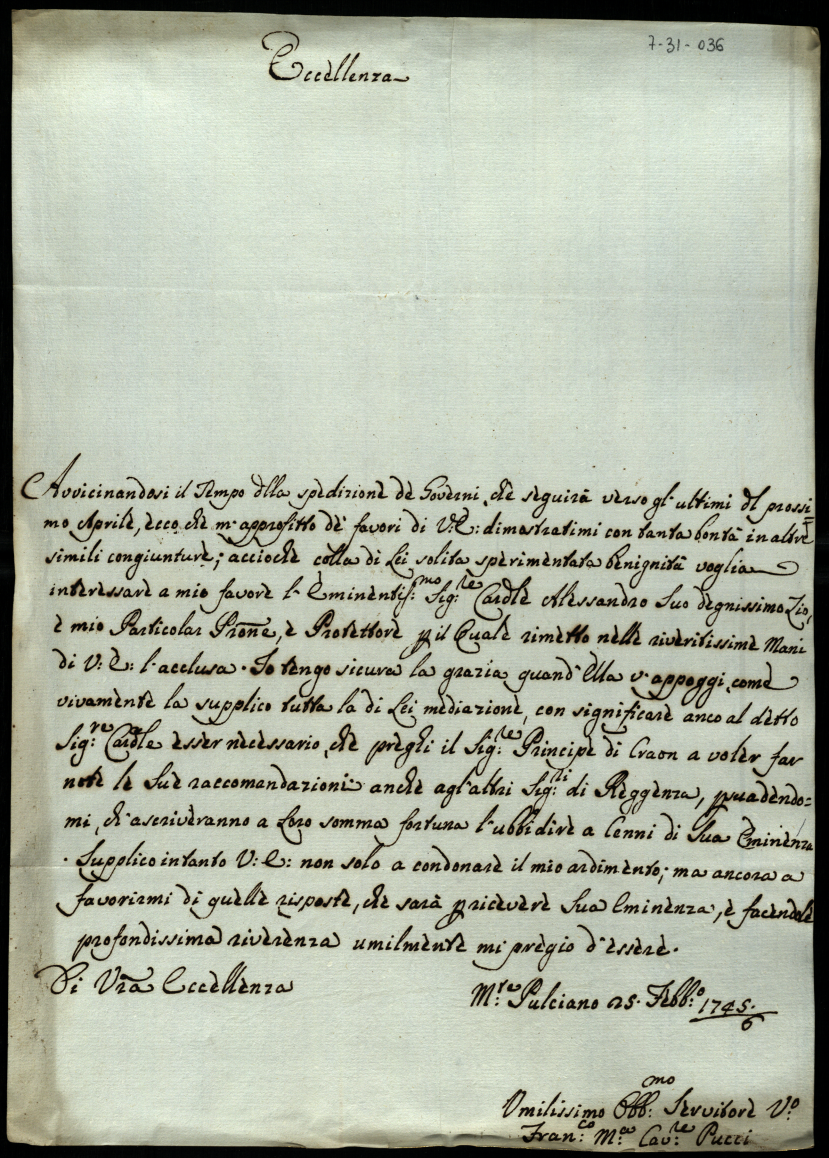 7-31-036
Eccellenza
Avvicinandosi il Tempo dlla spedizione de Governi, che seguirà verso gl'ultimi dl prossi=
mo Aprile, ecco che m'approfitto de' favori di V: E: dimostratimi con tanta bontà in altre
simili congiunture; acciochè colla di Lei solita sperimentata benignità voglia
interessare a mio favore l'Eminentis:mo Sig:re Cardle Alessandro Suo degnissimo Zio,
è mio Particolar Prōne, è Protettore, p il Quale rimetto nelle riveritissime Mani
di V: E: l'acclusa. Io tengo sicura la grazia quand'Ella v'appoggi, come
vivamente la supplico tutta la di Lei mediazione, con significare anco al detto
Sig:re Cardle esser necessario, che preghi il Sig:re Principe di Craon a voler far
note le Sue raccomandazioni anche agl'altri Sig:ri di Reggenza, psuadendo=
mi, ch'ascriveranno a Loro somma fortuna l'ubbidire a Cenni di Sua Eminenza
. Supplico intanto V: E: non solo a condonare il mio ardimento; ma ancora a
favorirmi di quelle risposte, che sarà p ricevere Sua Eminenza, è facendole
profondissima riverenza umilmente mi pregio d'essere.
Di Vrā Eccellenza
M:te Pulciano 25. Febb:o 1745/6
Vmilissimo Obb:mo Servitore V:o
Fran:co M:a Cav:re Pucci